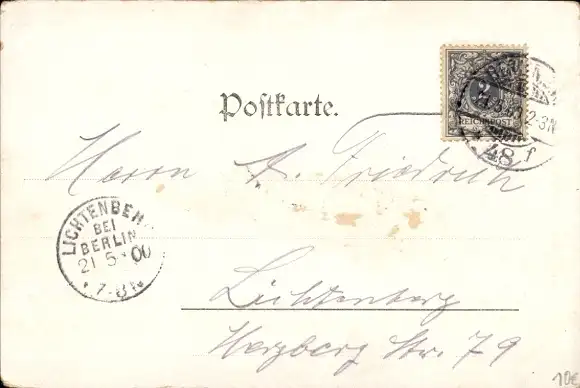 Postkarte.
2
REICHSPOST
48 f
Herrn A. Friedrich
LICHTENBE
BEI
BERLIN
21 5 00
7-8 N
Lichtenberg
Herzberg Str. 79
10€